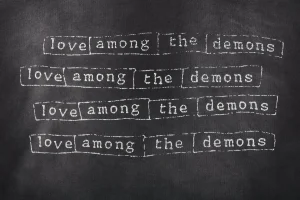 love among the demons
love among the demons
love among the demons
love among the demons